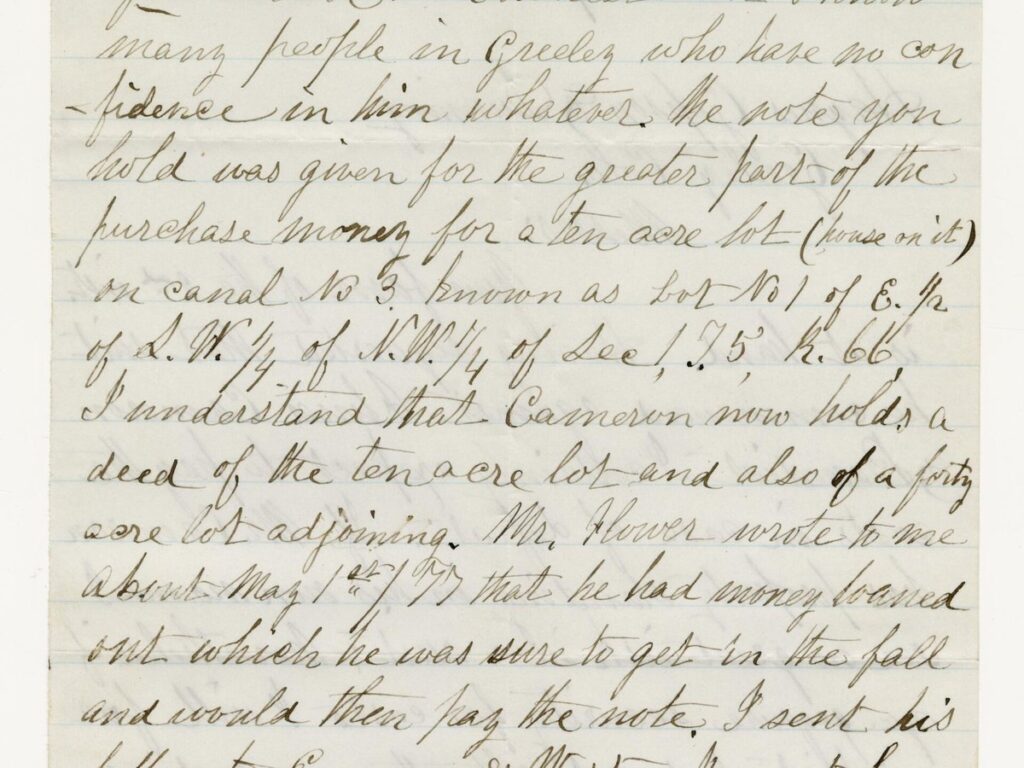 many people in Greeley who have no con
-fidence in him whatever. The note you
hold was given for the greater part of the
purchase money for a ten acre lot (house on it)
on canal No 3. known as Lot No 1 of E. 1/2
of S. W. 1/4 of N. W. 1/4 of Sec 1, T. 5, R. 66,
I understand that Cameron now holds a
deed of the ten acre lot and also of a forty
acre lot adjoining. Mr. Flower wrote to me
about May 1st /77 that he had money loaned
out which he was sure to get in the fall
and would then pay the note. I sent his